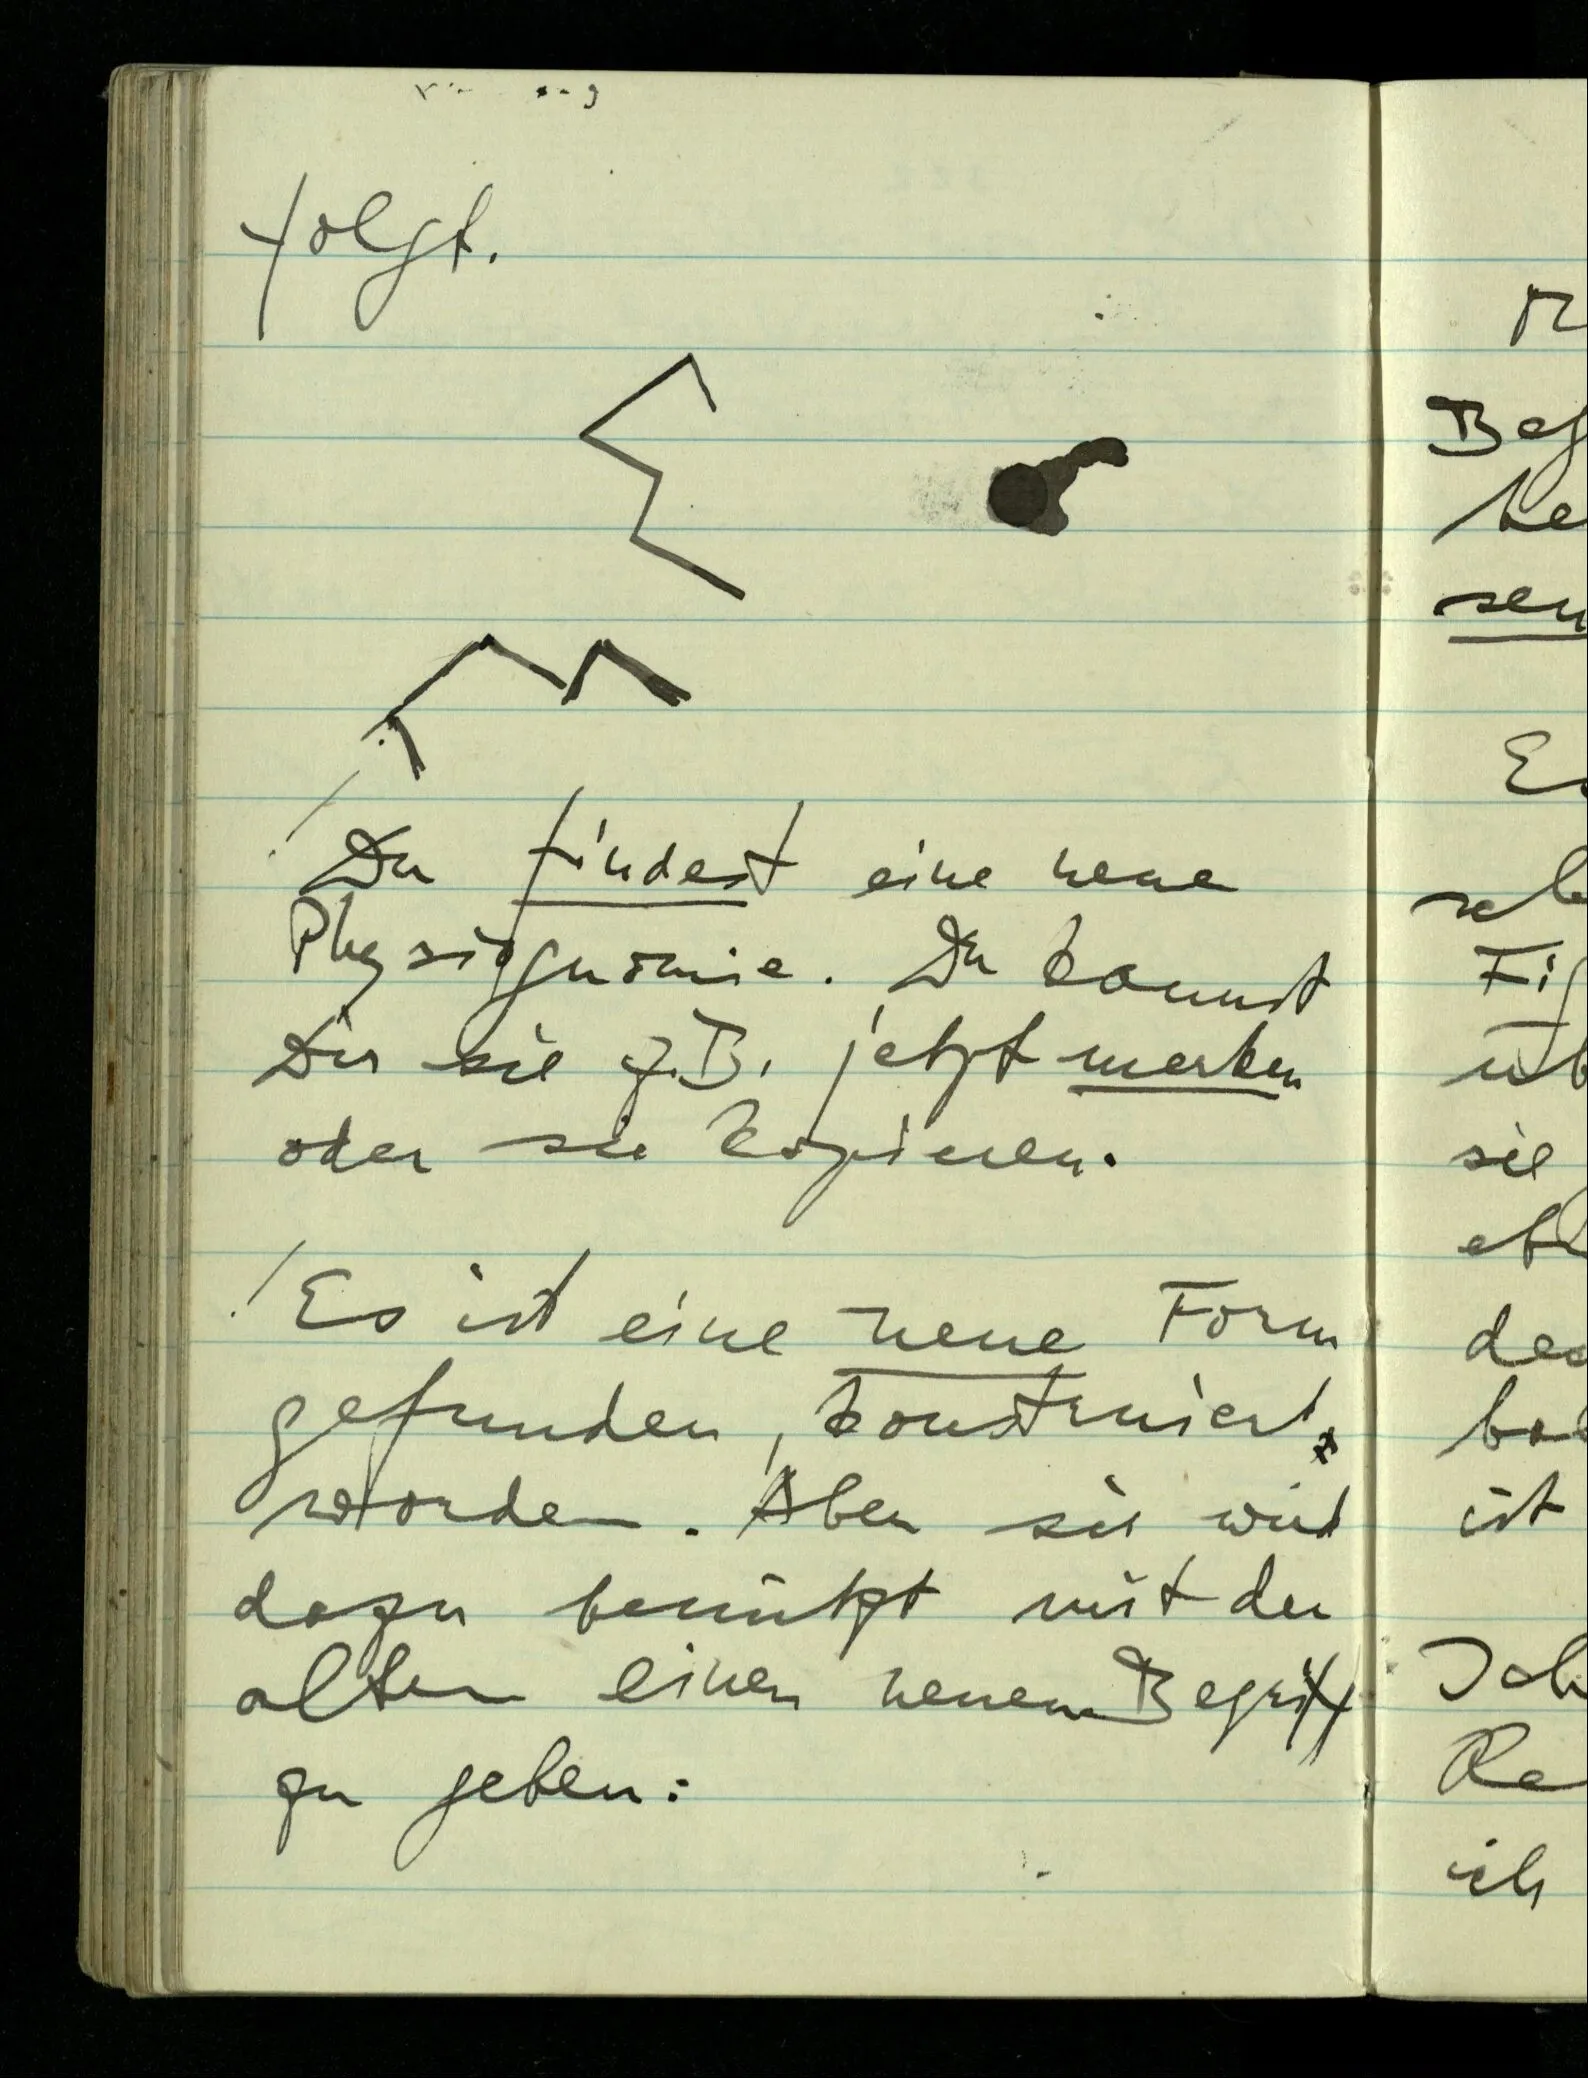 folgt.
Du findest eine neue
Physiognomie. Du kannst
Dir sie z.B. jetzt merken
oder sie kopieren.
Es ist eine neue Form
gefunden, konstruiert
worden. Aber sie wird
dazu benützt mit der
alten einen neuen Begriff
zu geben: